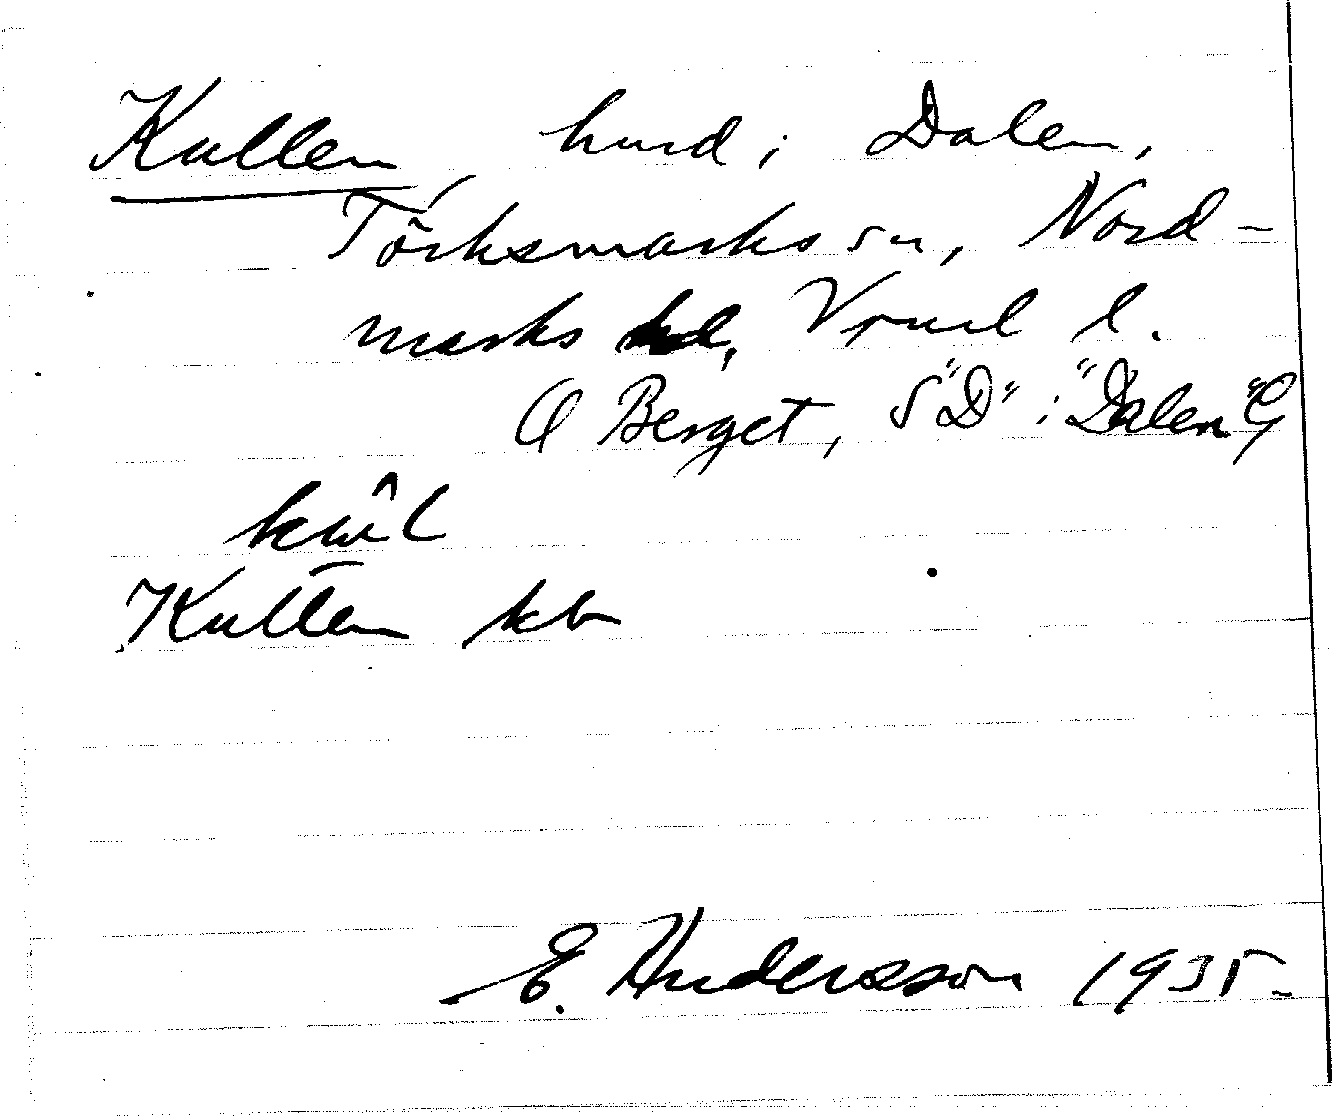 Kullen, husd i Dalen,
Törksmarks sn, Nord-
marks hd, Vrml l.
Q Berget, S "D" i "Dalen" G
Kullen kb
E. Andersson 1935